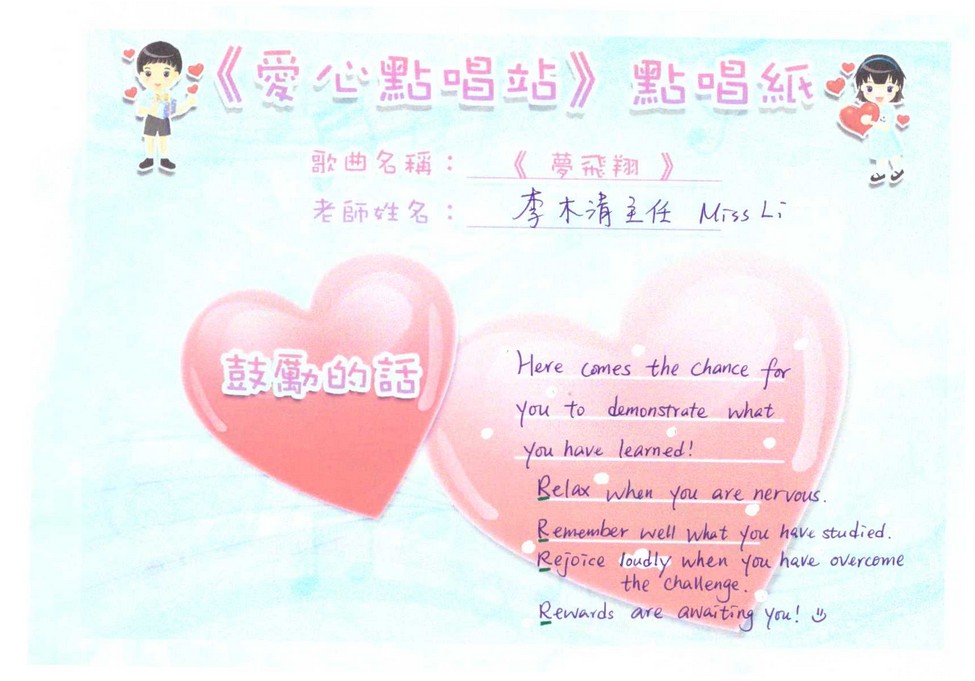 《愛心點唱站》點唱紙
歌曲名稱：《 夢飛翔 》
老師姓名：李木清主任 Miss Li
鼓勵的話
Here comes the chance for
you to demonstrate what
you have learned!
Relax when you are nervous.
Remember well what you have studied.
Rejoice loudly when you have overcome
the challenge.
Rewards are awaiting you!